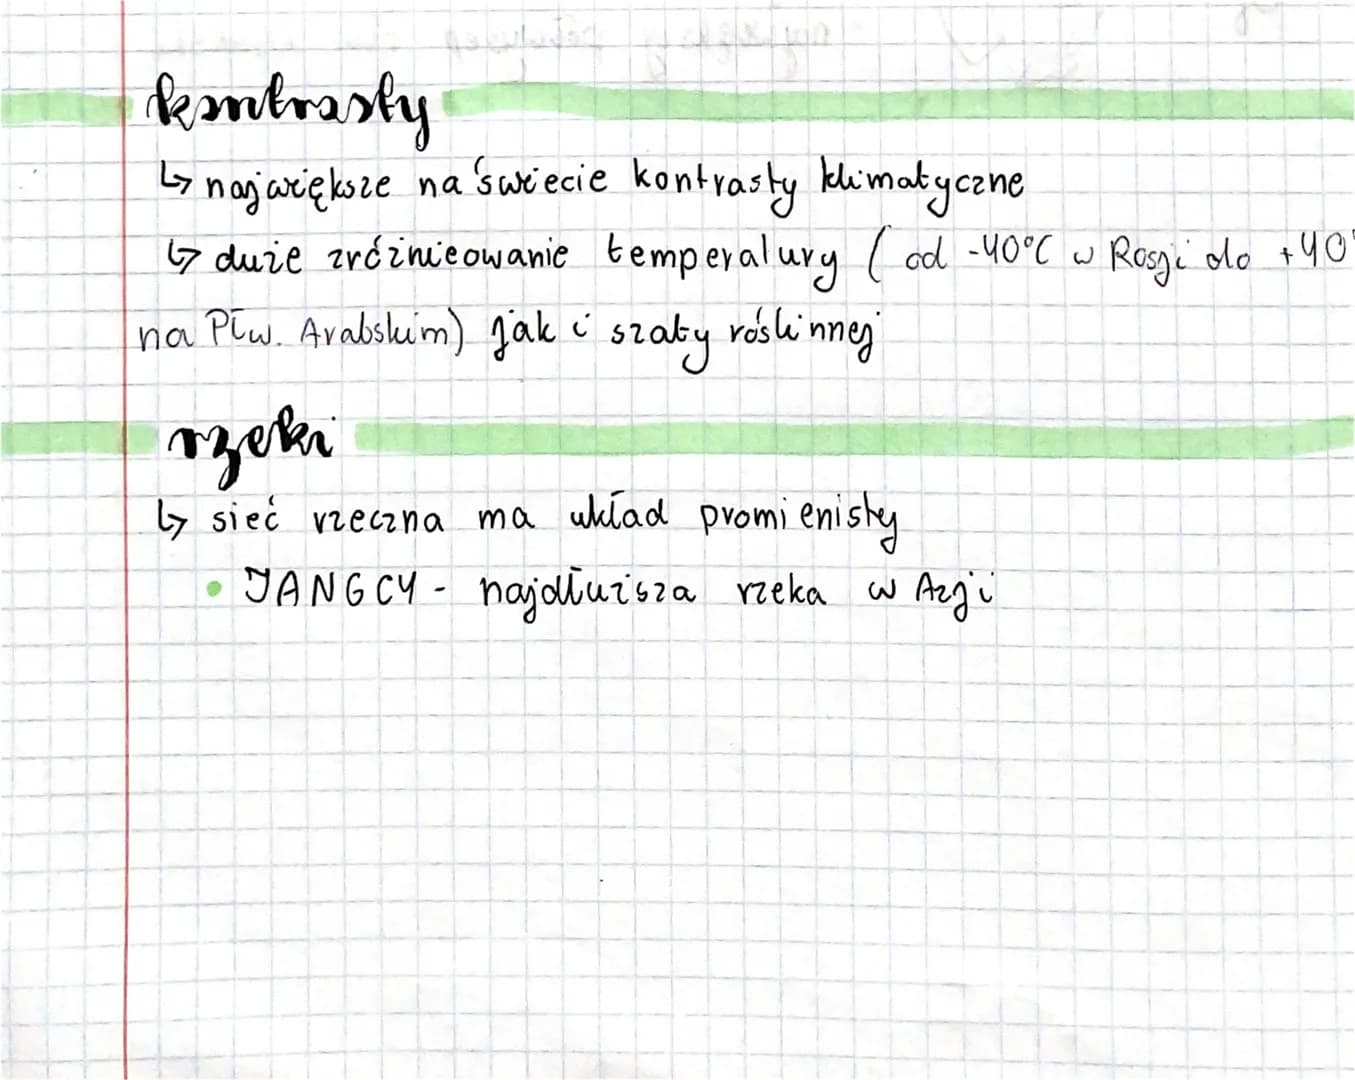 kontrasty
↳ największe na świecie kontrasty klimatyczne
↳ duże zróżnieowanie temperatury ( od -40°C w Rosji do +40°
na Płw. Arabskim) jak i szaty roślinnej
rzeki
↳ sieć rzeczna ma układ promienisty
• JANGCY - najdłuższa rzeka w Azji